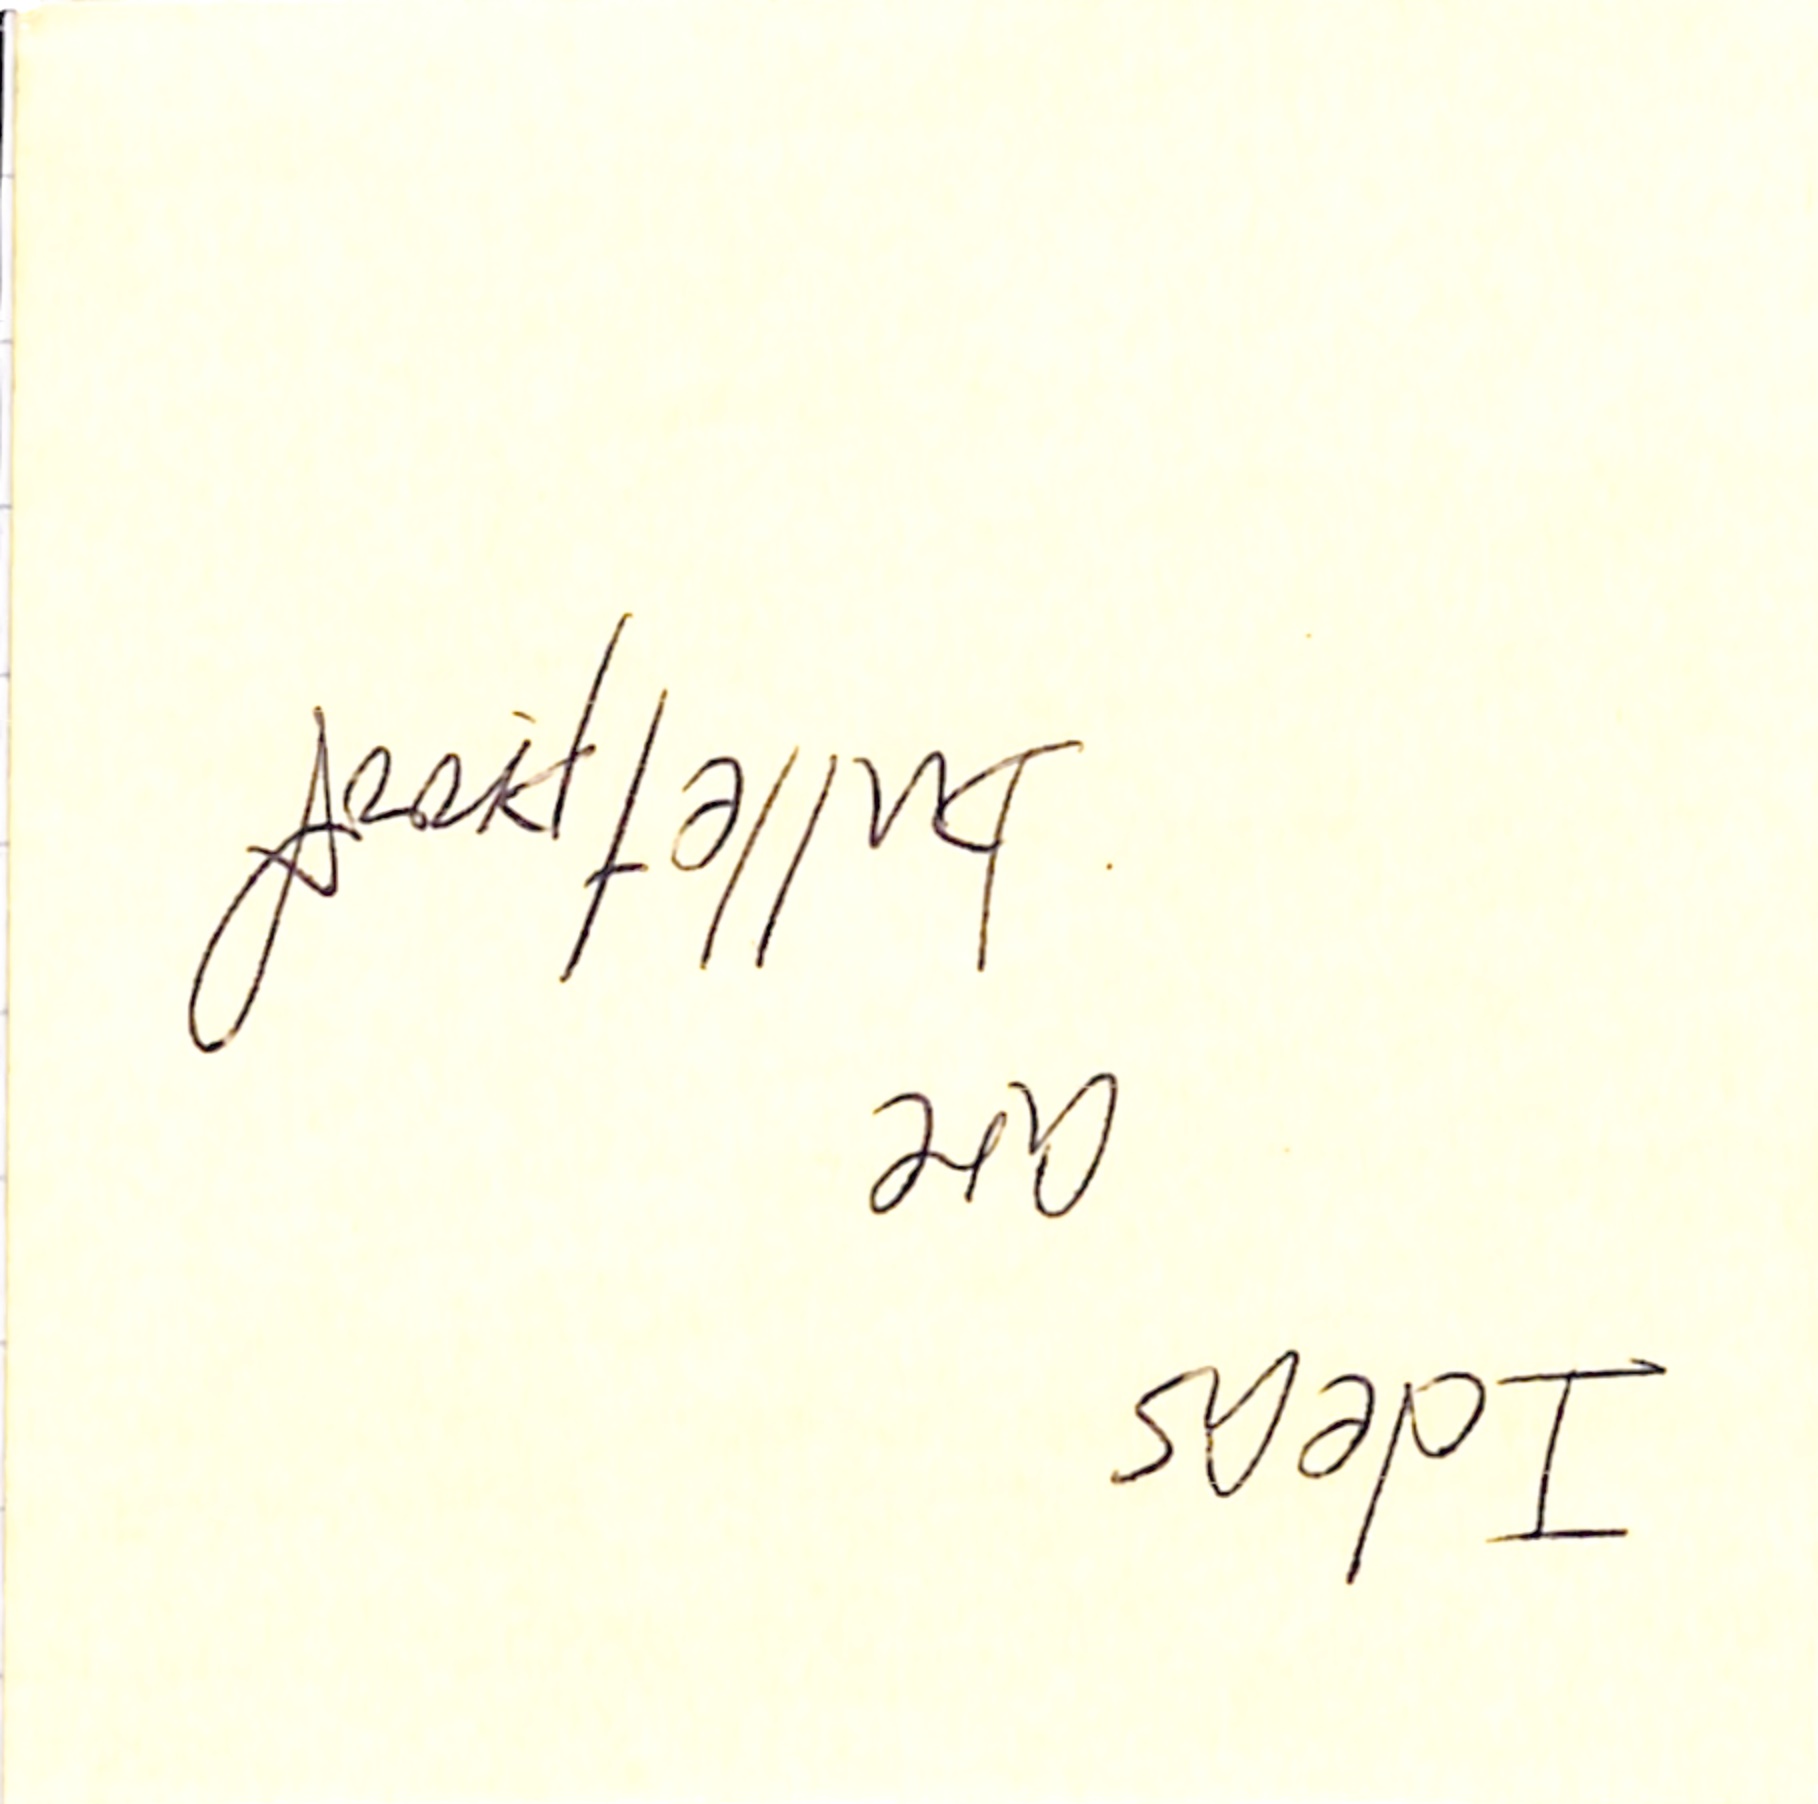 Ideas
are
bulletproof